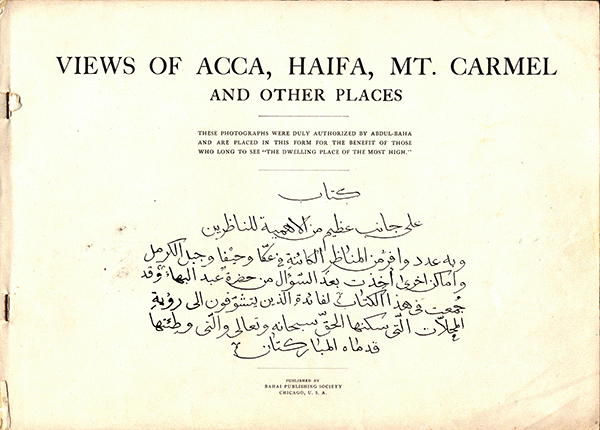 VIEWS OF ACCA, HAIFA, MT. CARMEL
AND OTHER PLACES
THESE PHOTOGRAPHS WERE DULY AUTHORIZED BY ABDUL-BAHA
AND ARE PLACED IN THIS FORM FOR THE BENEFIT OF THOSE
WHO LONG TO SEE "THE DWELLING PLACE OF THE MOST HIGH."
كتاب
على جانب عظيم من الاهمية للناظرين
وبه عدد وافر من المناظر الكائنة في عكّا وحيفا وجبل الكرمل
واماكن اخرى أخذت بعد السّؤال من حضرة عبد البهاء وقد
جُمعت فى هذا الكتاب لفائدة الذين يتشوّقون الى رؤية
المحلّات الّتى سكنها الحقّ سبحانه وتعالى والّتى وطئتها
قدماه المباركتان
PUBLISHED BY
BAHAI PUBLISHING SOCIETY
CHICAGO, U. S. A.